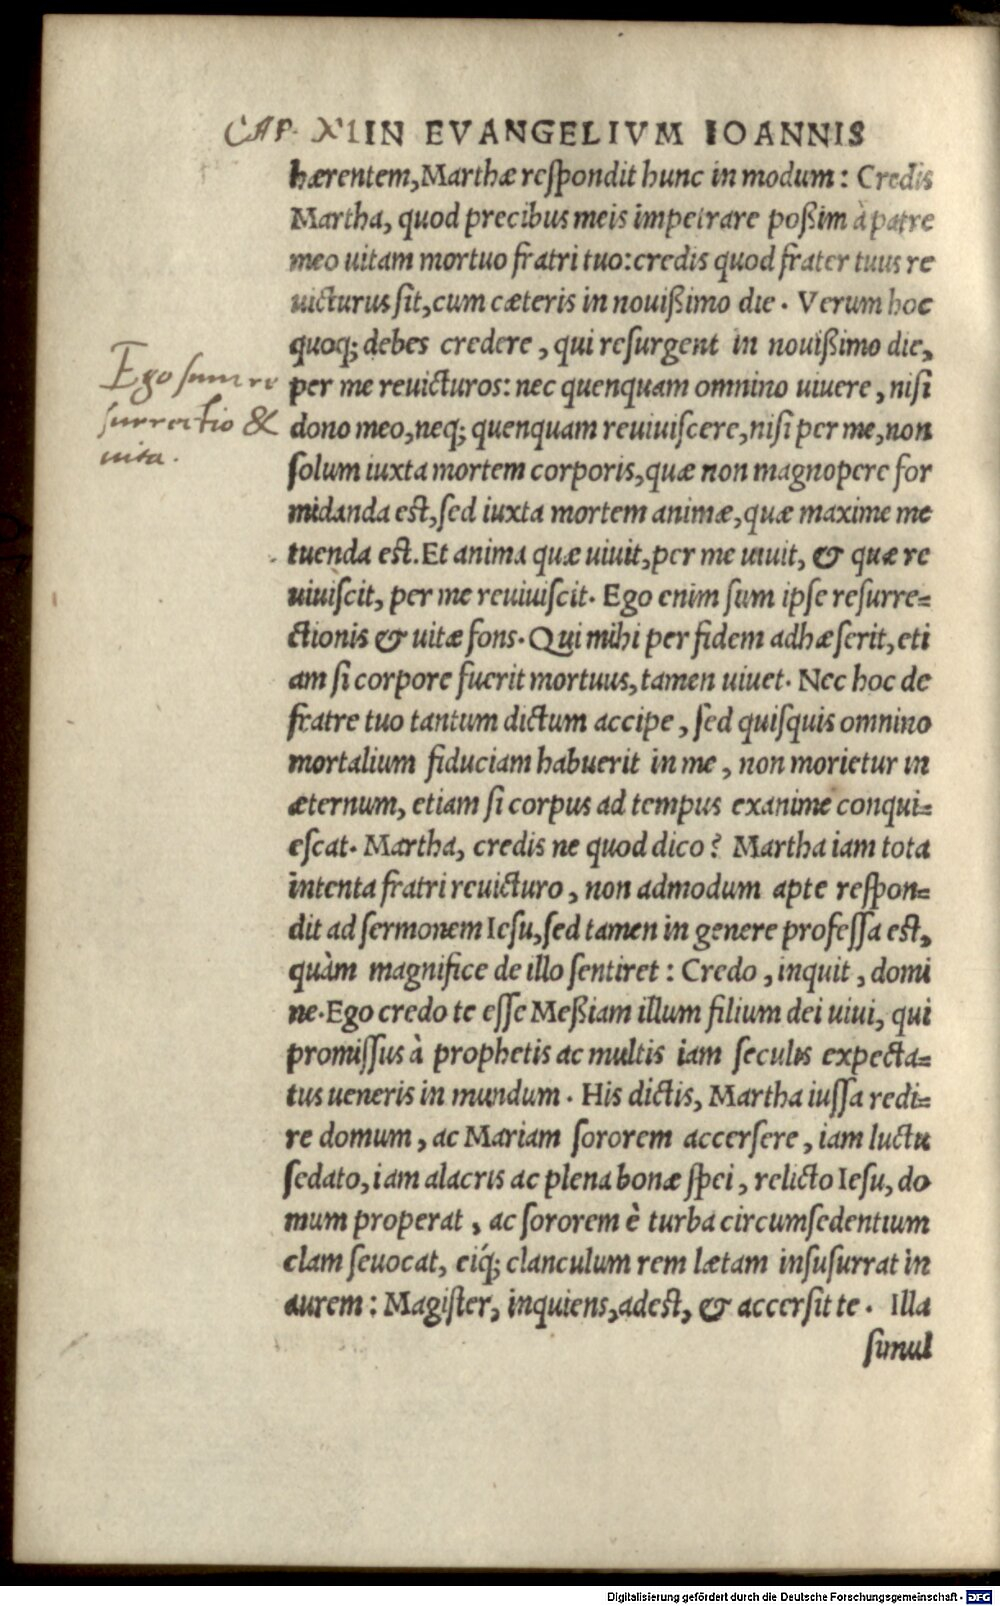 CAP. XI IN EVANGELIVM IOANNIS
hærentem, Marthæ reſpondit hunc in modum: Credis
Martha, quod precibus meis impetrare poßim à patre
meo uitam mortuo fratri tuo: credis quod frater tuus re
uicturus ſit, cum cæteris in nouißimo die. Verum hoc
quoq; debes credere, qui reſurgent in nouißimo die,
per me reuicturos: nec quenquam omnino uiuere, niſi
dono meo, neq; quenquam reuiuiſcere, niſi per me, non
ſolum iuxta mortem corporis, quæ non magnopere for
midanda eſt, ſed iuxta mortem animæ, quæ maxime me
tuenda eſt. Et anima quæ uiuit, per me uiuit, & quæ re
uiuiſcit, per me reuiuiſcit. Ego enim ſum ipſe reſurre=
ctionis & uitæ fons. Qui mihi per fidem adhæſerit, eti
am ſi corpore fuerit mortuus, tamen uiuet. Nec hoc de
fratre tuo tantum dictum accipe, ſed quiſquis omnino
mortalium fiduciam habuerit in me, non morietur in
æternum, etiam ſi corpus ad tempus exanime conqui=
eſcat. Martha, credis ne quod dico? Martha iam tota
intenta fratri reuicturo, non admodum apte reſpon=
dit ad ſermonem Ieſu, ſed tamen in genere profeſſa eſt,
quàm magnifice de illo ſentiret: Credo, inquit, domi
ne. Ego credo te eſſe Meßiam illum filium dei uiui, qui
promiſſus à prophetis ac multis iam ſeculis expecta=
tus ueneris in mundum. His dictis, Martha iuſſa redi=
re domum, ac Mariam ſororem accerſere, iam luctu
ſedato, iam alacris ac plena bonæ ſpei, relicto Ieſu, do
mum properat, ac ſororem è turba circumſedentium
clam ſeuocat, eiq́; clanculum rem lætam inſuſurrat in
aurem: Magiſter, inquiens, adeſt, & accerſit te. Illa
ſimul
Ego ſum re
ſurrectio &
uita.
Digitalisierung gefördert durch die Deutsche Forschungsgemeinschaft - DFG